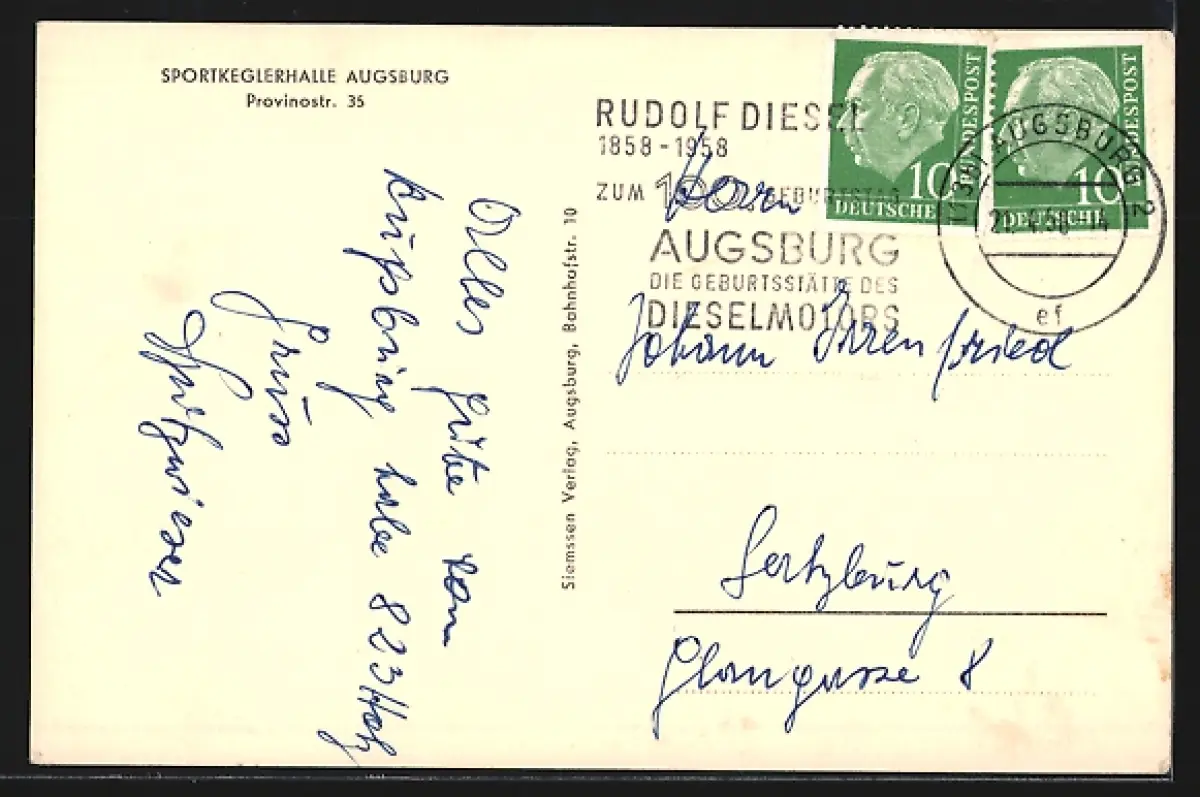 SPORTKEGLERHALLE AUGSBURG
Provinostr. 35
Alles gute vom
Augsburg habe 823 Holz
Gruss
Siemssen Verlag, Augsburg, Bahnhofstr. 10
RUDOLF DIESEL
1858 - 1958
ZUM 100. GEBURTSTAG
AUGSBURG
DIE GEBURTSSTÄTTE DES
DIESELMOTORS
10
DEUTSCHE
BUNDESPOST
10
DEUTSCHE
BUNDESPOST
(13b) AUGSBURG 2
21.4.58 - 14
ef
Herrn
Johann Irrenfried
Salzburg
Glangasse 8